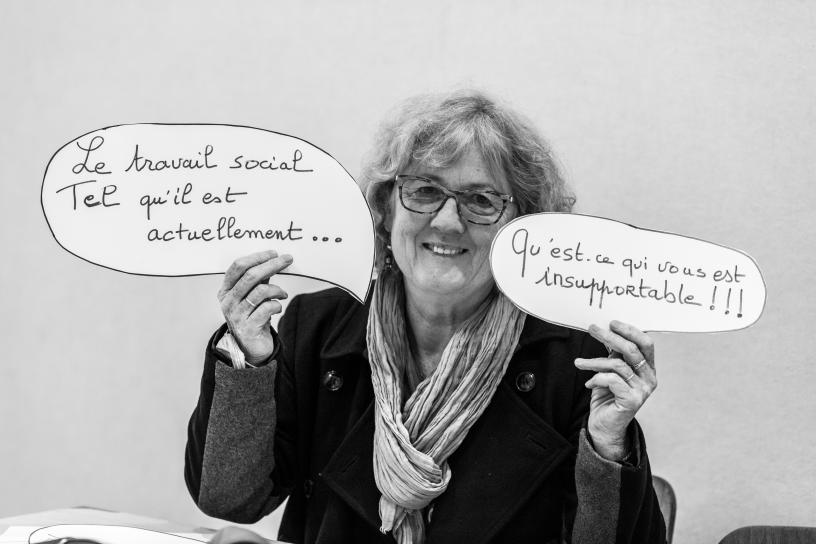 Le travail social
Tel qu'il est
actuellement...
Qu'est-ce qui vous est
insupportable !!!